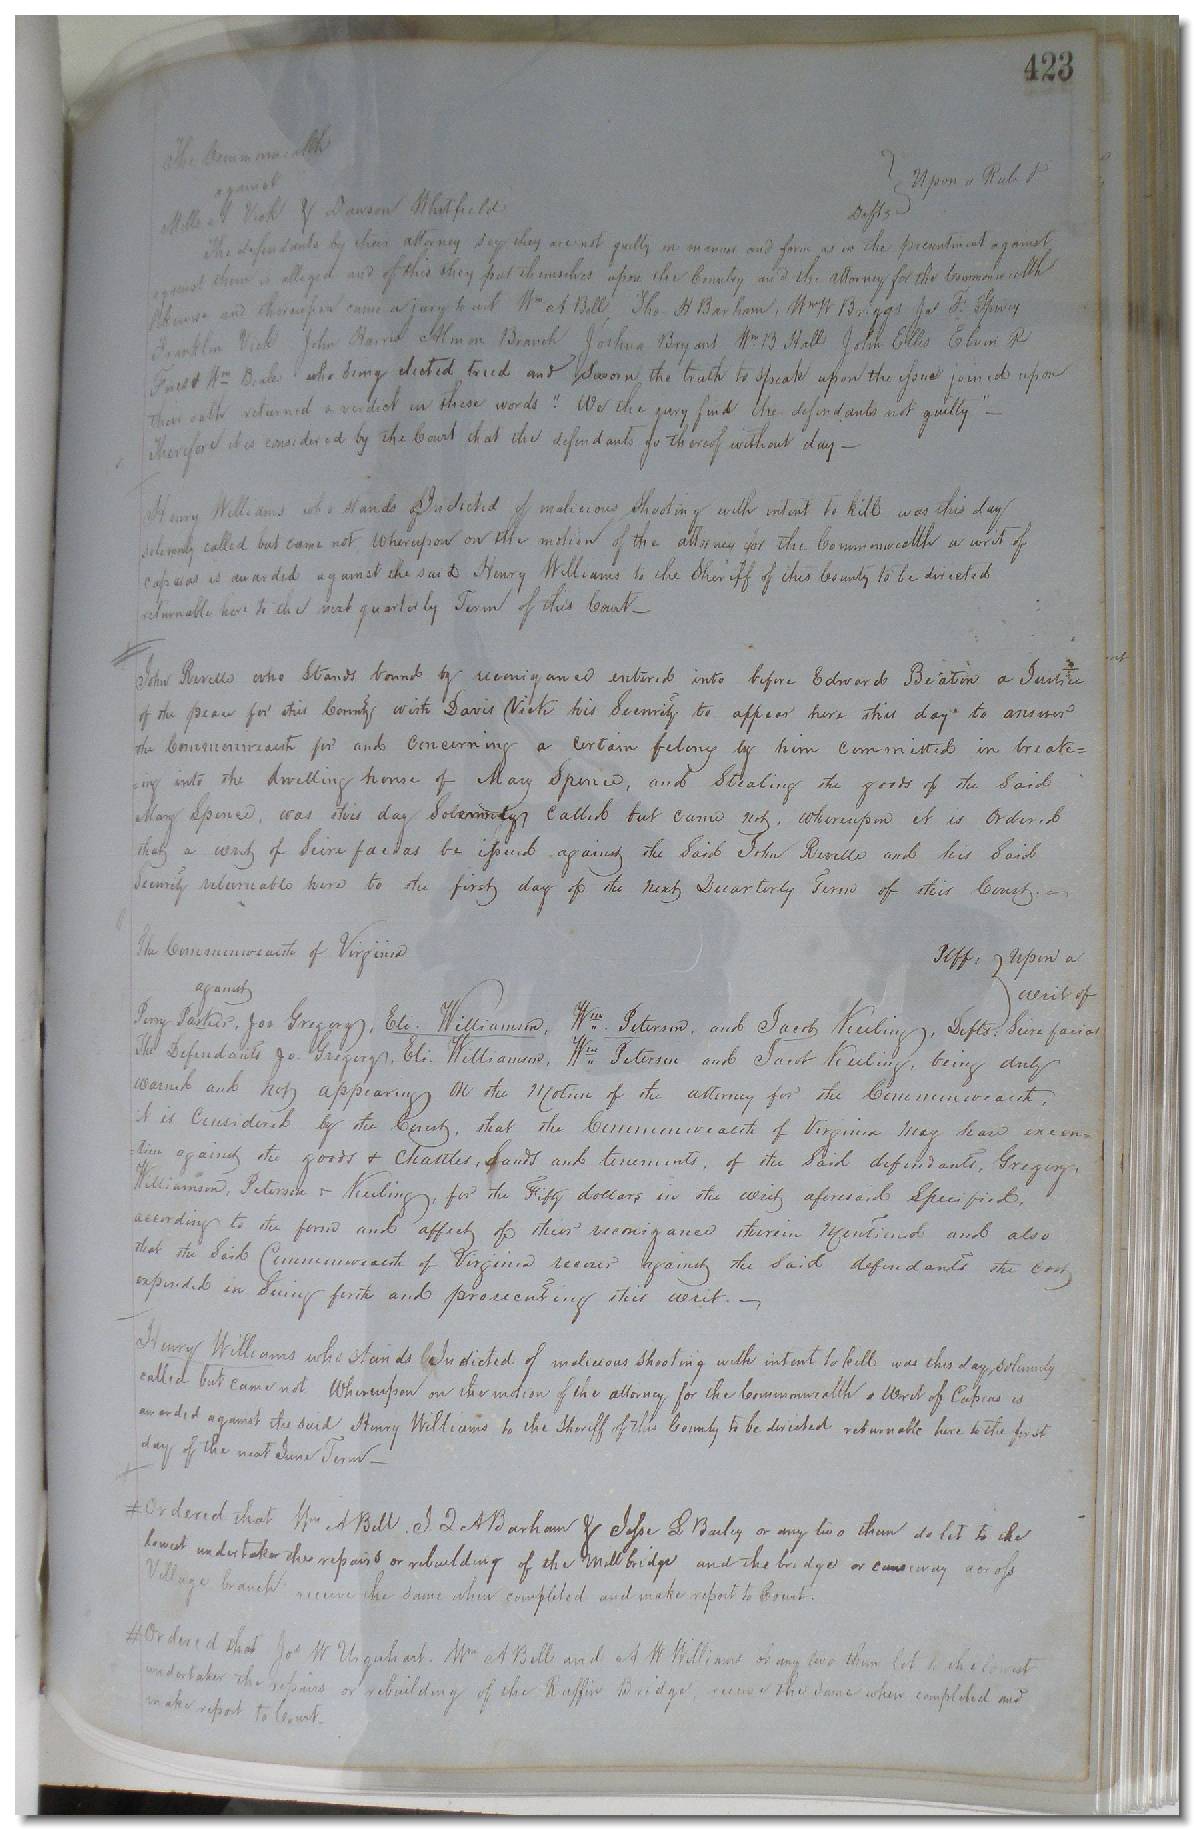 423
The Commonwealth
against
Upon a Rule
Mills A Vick & Dawson Whitfield
Defts
The defendants by their attorney say they are not guilty in manner and form as in the presentment against
against them is alleged and of this they put themselves upon the Country and the attorney for the Commonwealth
likewise and thereupon came a jury to wit Wm A Bell, Tho. H Barham, Wm H Briggs Jas F. Spivey
Franklin Vick John Harris Almon Branch Joshua Bryant Wm B Halls John Ellis Elvin R
Wm Beale who being elected tried and Sworn the truth to speak upon the issue joined upon
their oath returned a verdict in these words "We the jury find the defendants not guilty"—
Therefore it is considered by the Court that the defendants go thereof without day—
Henry Williams who stands Indicted of malicious Shooting with intent to kill was this day
solemnly called but came not Whereupon on the motion of the attorney for the Commonwealth a writ of
capias is awarded against the said Henry Williams to the Sheriff of this County to be directed
returnable here to the next quarterly Term of this Court—
John Revells who Stands bound by recoignance entered into before Edward Beaton a Justice
of the peace for this County with Davis Vick his Security to appear here this day to answer
the Commonwealth for and Concerning a certain felony by him committed in break=
=ing into the dwelling house of Mary Spence, and Stealing the goods of the Said
Mary Spence, was this day Solemnly called but came not, whereupon it is Ordered
that a writ of Scire facias be issued against the Said John Revells and his Said
Security returneable here to the first day of the next Quarterly Term of this Court.—
The Commonwealth of Virginia
Plff. Upon a
against
writ of
Perry Parker, Jos Gregory, Eli. Williamson, Wm. Peterson, and Jacob Keeling, Defts. Scire facias
The Defendants Jo. Gregory, Eli. Williamson, Wm Peterson and Jacob Keeling, being duly
warned and not appearing On the Motion of the attorney for the Commonwealth,
it is Considered by the Court, that the Commonwealth of Virginia may have execu=
=tion against the goods & Chattles, Lands and tenements, of the Said defendants, Gregory,
Williamson, Peterson & Keeling, for the Fifty dollars in the writ aforesaid Specified,
according to the form and affect of their recoignance therein Mentioned and also
that the Said Commonwealth of Virginia recover against the Said defendants the cost
expended in Suing forth and prosecuting this writ.—
Henry Williams who stands Indicted of malicious Shooting with intent to kill was this day solemnly
called but came not Whereupon on the motion of the attorney for the Commonwealth a Writ of Capias is
awarded against the said Henry Williams to the Sheriff of this County to be directed returnable here to the first
day of the next June Term—
# Ordered that Wm A Bell, J Q A Barham & Jesse L Bailey or any two them do let to the
lowest undertaker the repairs or rebuilding of the Mill bridge and the bridge or causeway across
Village branch receive the same when completed and make report to Court.
# Ordered that Jas W Urquhart. Wm A Bell and A W Williams or any two them let to the lowest
undertaker the repairs or rebuilding of the Ruffin Bridge, receive the same when completed and
make report to Court—